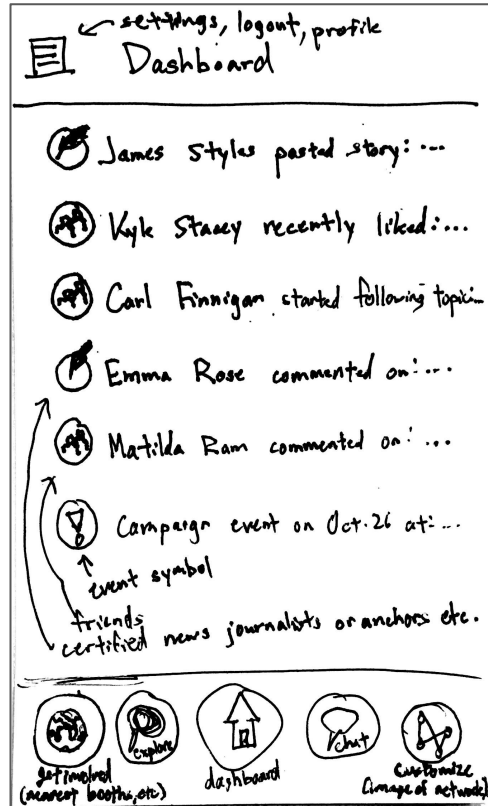 settings, logout, profile
Dashboard
James Styles posted story: ...
Kyle Stacey recently liked: ...
Carl Finnigan started following topic: ...
Emma Rose commented on: ...
Matilda Ram commented on: ...
Campaign event on Oct. 26 at: ...
event symbol
friends
certified news journalists or anchors etc.
get involved
(nearest booths, etc)
explore
dashboard
chat
customize
(image of network)